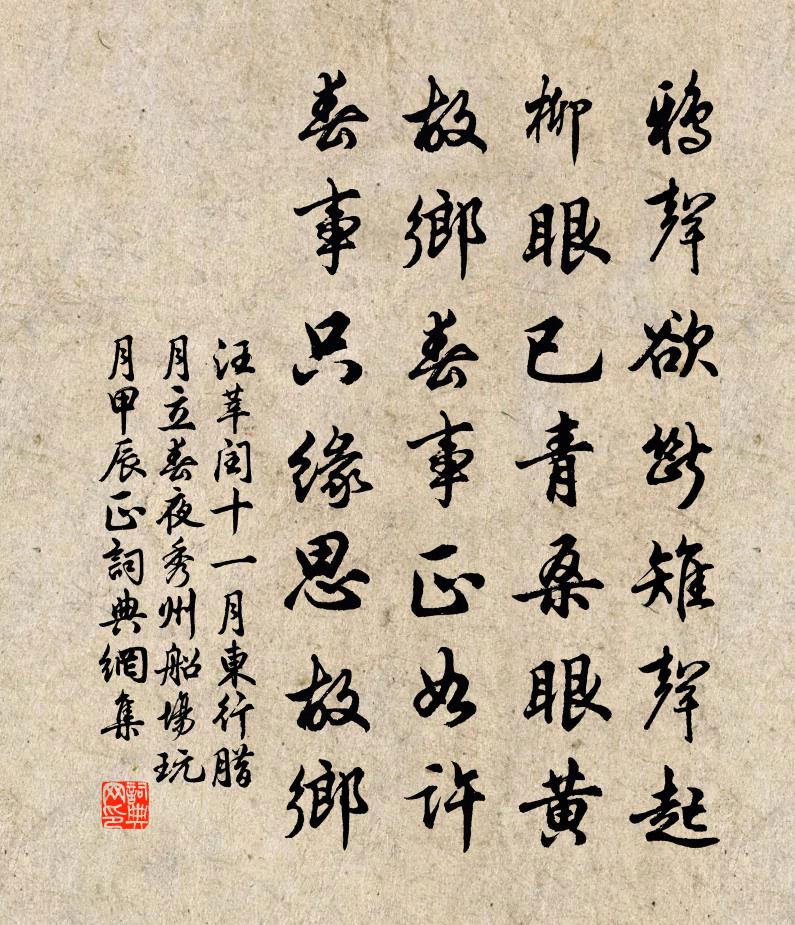 鴉聲欲斷雉聲起
柳眼已青桑眼黃
故鄉春事正如許
春事只緣思故鄉
汪莘閏十一月東行腊
月立春夜秀州船場玩
月甲辰正詞典網集
詞典网印